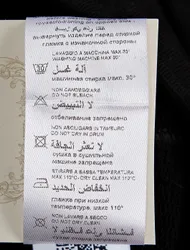 выверните изделие перед стиркой
с изнаночной стороны
LAVAGGIO A MACCHINA MAX 30°
WASHING MACHINE MAX 30°
آلة غسل
машинная стирка макс. 30°
NON CANDEGGIARE
DO NOT BLEACH
لا التبييض
отбеливание запрещено
NON ASCIUGARE IN TAMBURO
DO NOT DRY IN CLEAN
لا تعثر الجافة
сушка в сушильной
машине запрещена
STIRARE A BASSA TEMPERATURA
MAX 110°C-DRY CLEANE MAX 110°
انخفاض الحديد
глажка при низкой
температуре макс. 110°
NON LAVARE A SECCO
DO NOT DRY CLEAN